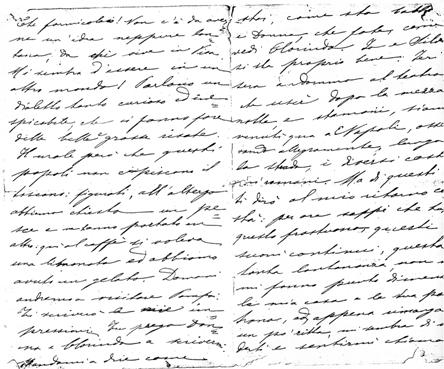 Che formicolio! Non c'è da aver=
ne un'idea neppure lon=
tana, da chi vive in
Mi sembra d'essere in un
altro mondo! Parlano un
dialetto tanto curioso ed ine=
splicabile, che ci fanno fare
delle belle grosse risate.
Il male però che questi
popoli non capiscono il
toscano: figurati, all'albergo
abbiamo chiesto un pe=
sce e m'anno portato un
altro. qui al caffè si voleva
una limonata ed abbiamo
avuto un gelato. Domani
andremo a visitare Pompei
Ti scriverò le mie im=
pressioni. Tu prega Don=
na e Clorinda a scrivermi
Mandami a dire come
stai, come sta
e Donna, che fate, come
vedi Clorinda. Io e
si sta proprio bene. Ier
sera andammo al teatro
che uscì dopo la mezza
notte e stamani, siamo
venuti qua a Napoli, osser
vando allegramente, lungo
la strada, i diversi costumi
romani. Ma di questi
ti dirò al mio ritorno
per ora sappi che
questo frastuono, questi
suoni continui, questa
tanta lontananza, non
mi fanno punto dimenticare
la mia casa e la tua per
sona, ed appena rimango
un po' sola, mi sembra di
darti e sentirmi chiamare